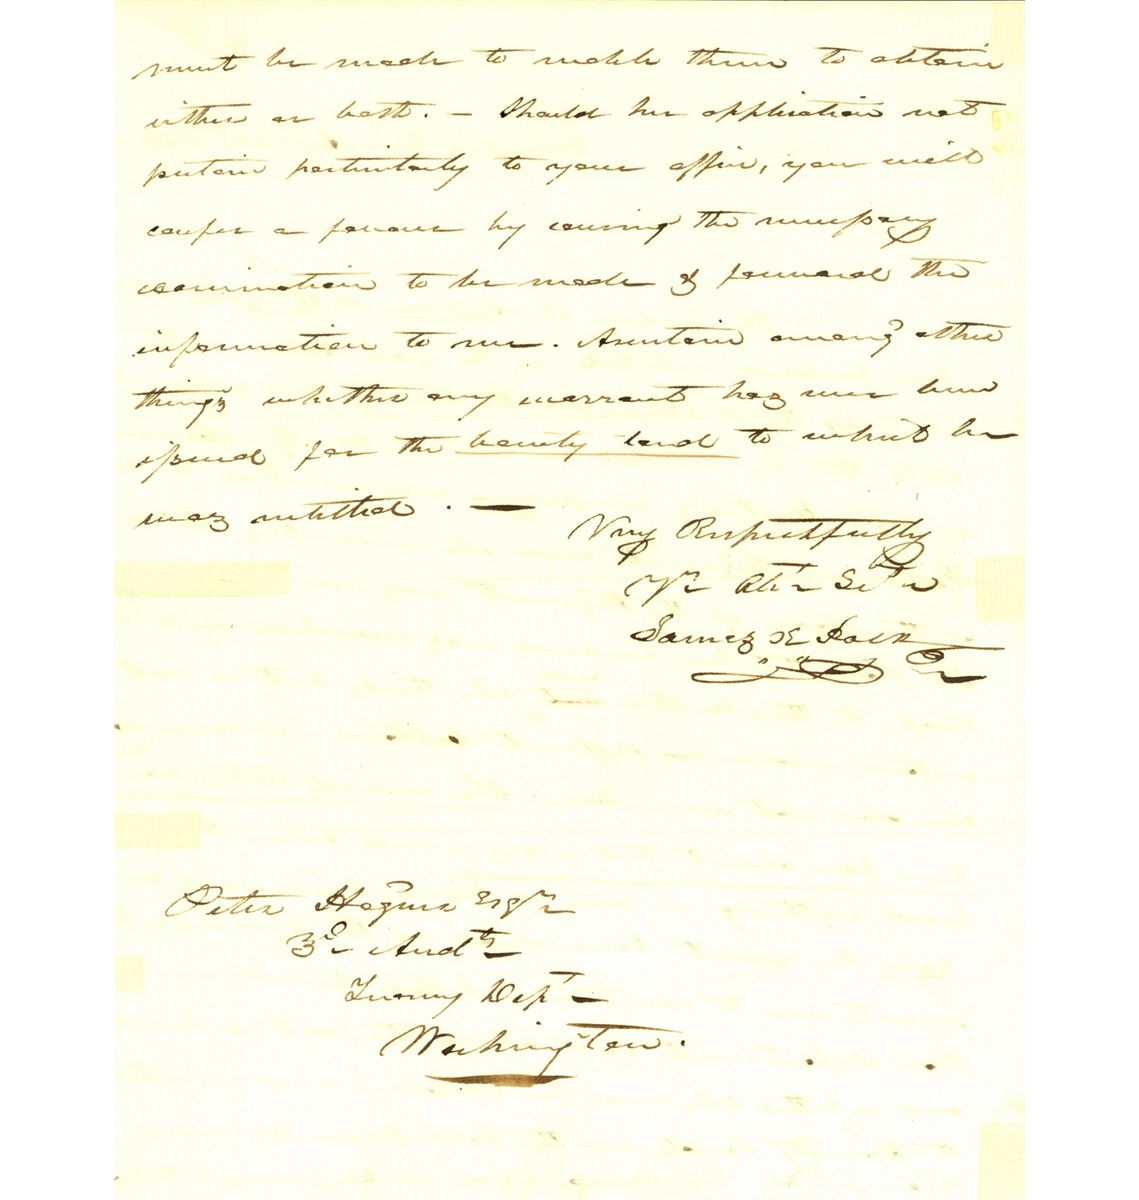 must be made to enable them to obtain
either or both. – Should her application not
pertain particularly to your office, you will
confer a favour by causing the necessary
examination to be made & forward the
information to me. Ascertain among other
things whether any warrant has ever been
issued for the bounty land to which he
was entitled. —
Very Respectfully
Yr Obt Sevt
James K Polk
Peter Hagner Esqr
3d Audtr
Treasury Dept
Washington.